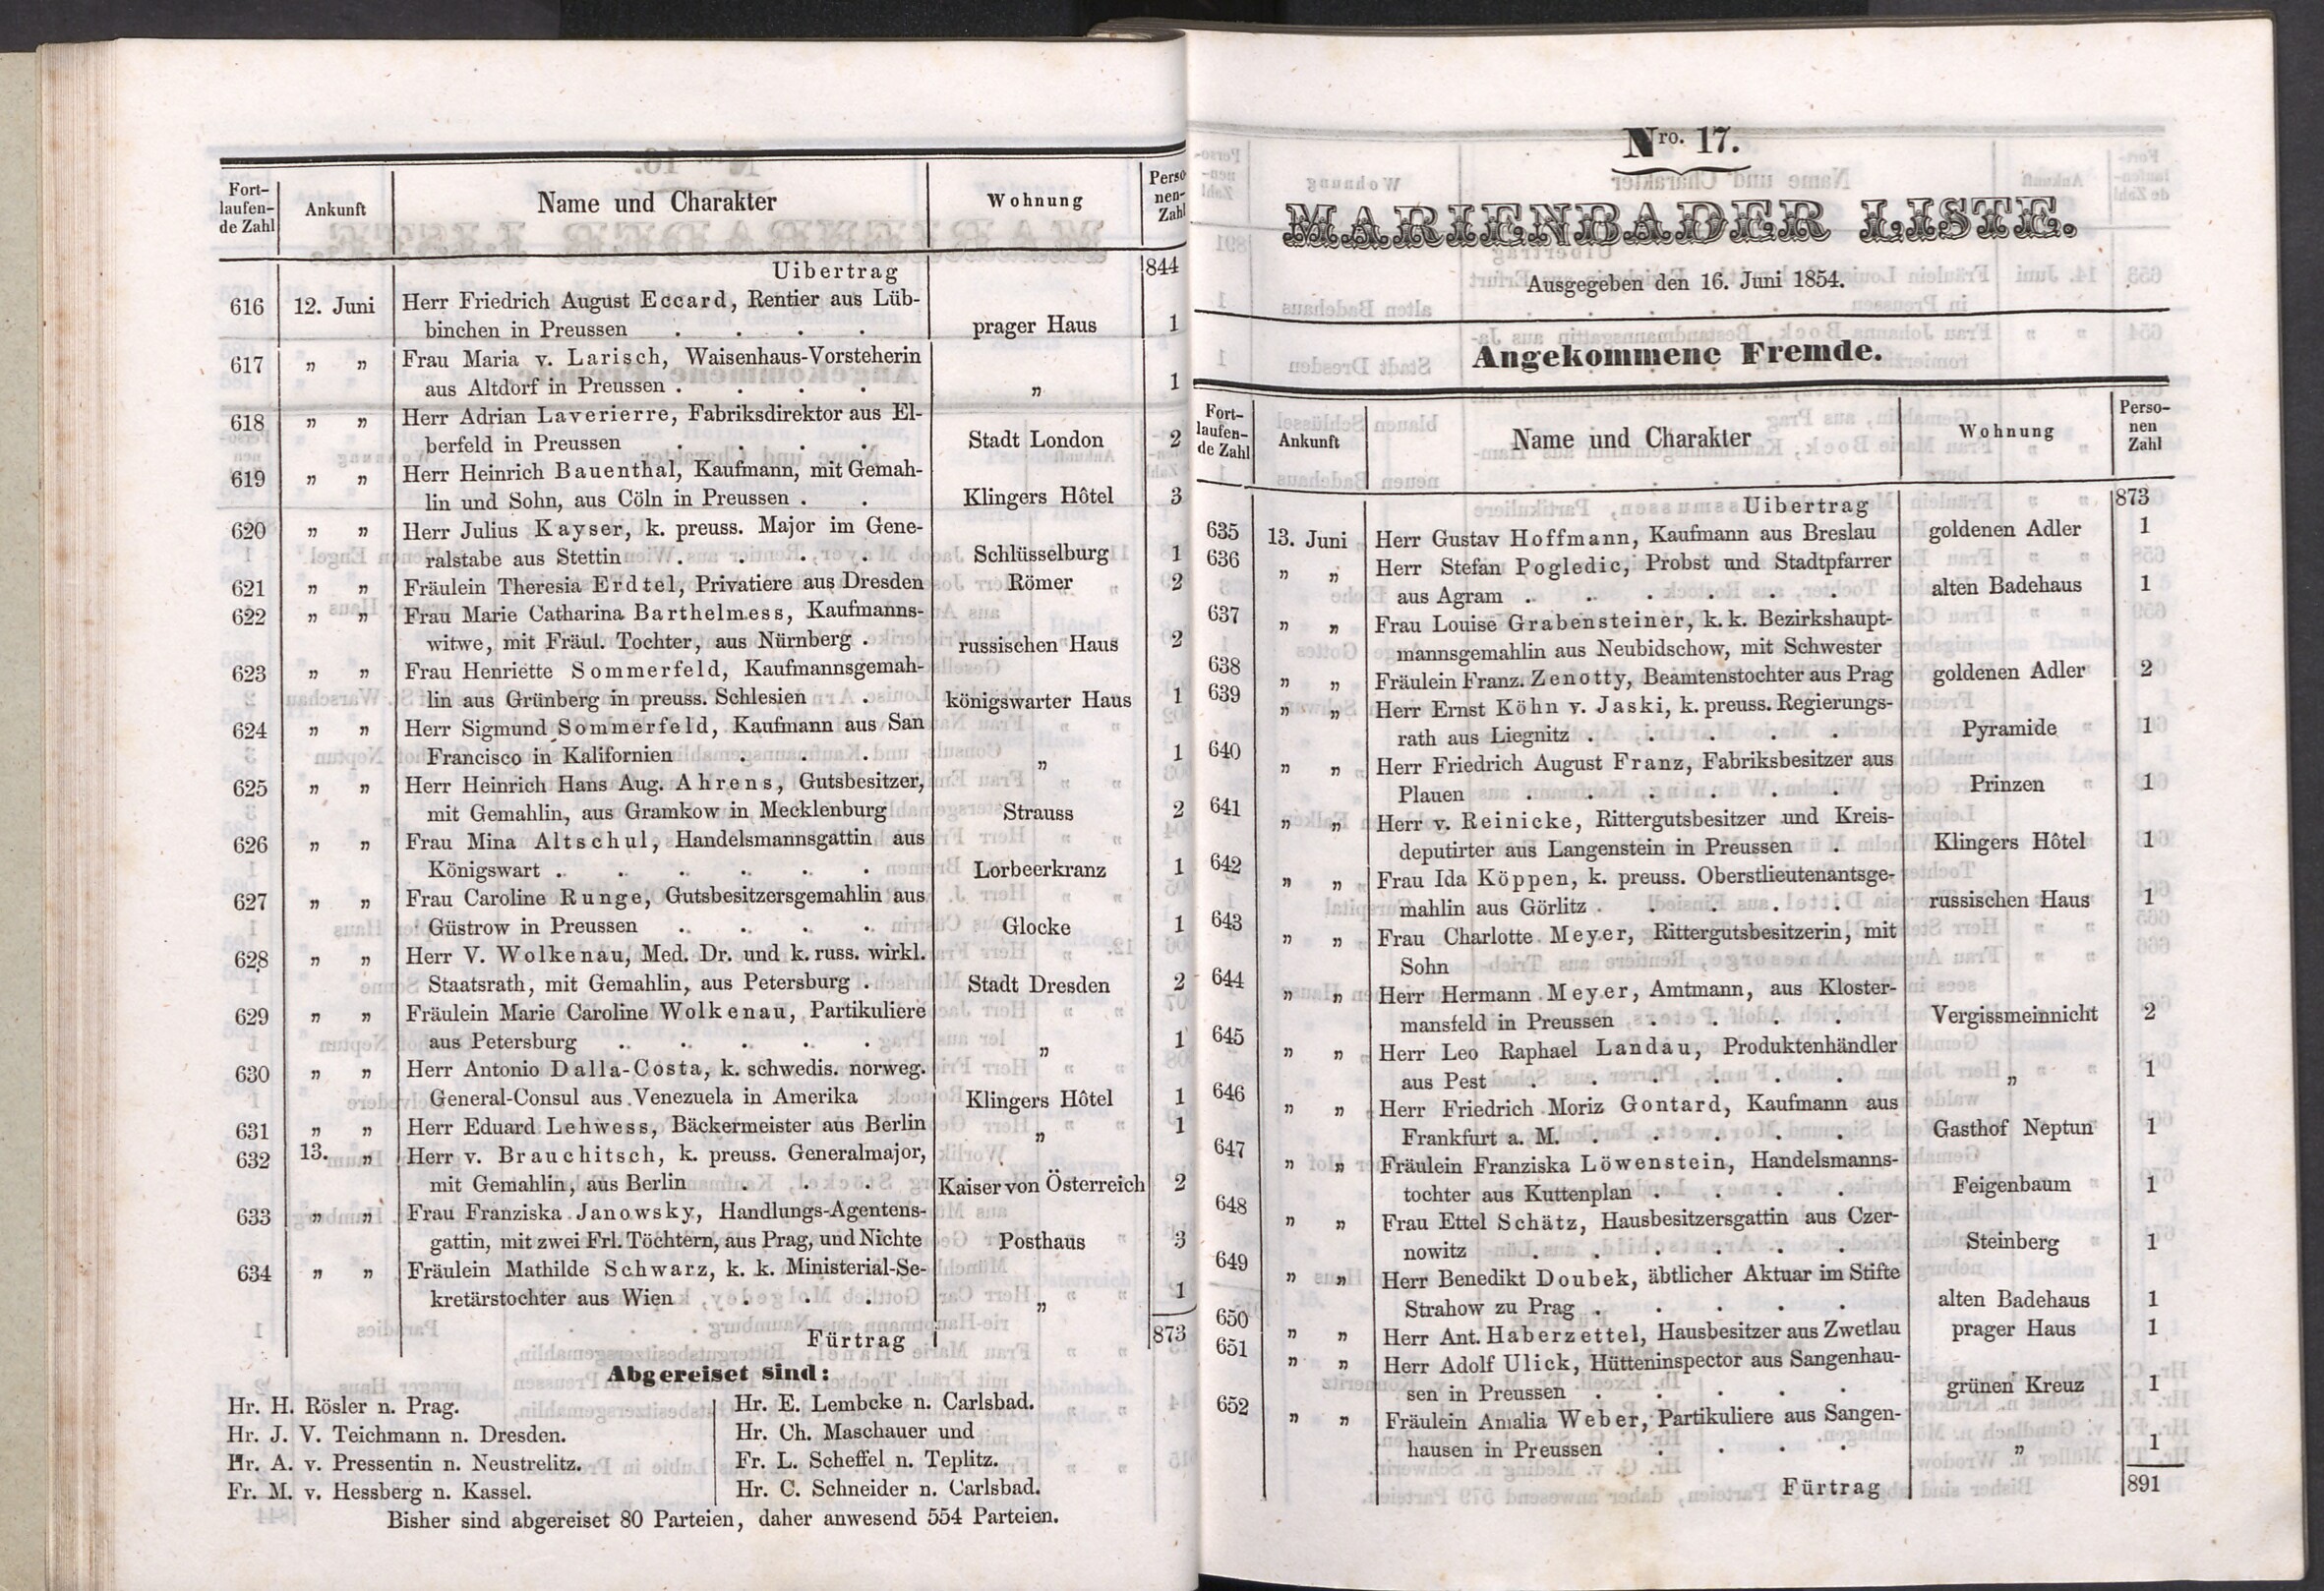 Fort-
laufen-
de Zahl
Ankunft
Name und Charakter
Wohnung
Perso-
nen-
Zahl
Uibertrag 844
616 12. Juni Herr Friedrich August Eccard, Rentier aus Lüb-
binchen in Preussen . . . . prager Haus 1
617 „ „ Frau Maria v. Larisch, Waisenhaus-Vorsteherin
aus Altdorf in Preussen . . . . „ 1
618 „ „ Herr Adrian Laverierre, Fabriksdirektor aus El-
berfeld in Preussen . . . . Stadt London 2
619 „ „ Herr Heinrich Bauenthal, Kaufmann, mit Gemah-
lin und Sohn, aus Cöln in Preussen . . Klingers Hôtel 3
620 „ „ Herr Julius Kayser, k. preuss. Major im Gene-
ralstabe aus Stettin . . . . Schlüsselburg 1
621 „ „ Fräulein Theresia Erdtel, Privatiere aus Dresden Römer 2
622 „ „ Frau Marie Catharina Barthelmess, Kaufmanns-
witwe, mit Fräul. Tochter, aus Nürnberg . russischen Haus 2
623 „ „ Frau Henriette Sommerfeld, Kaufmannsgemah-
lin aus Grünberg in preuss. Schlesien . königswarter Haus 1
624 „ „ Herr Sigmund Sommerfeld, Kaufmann aus San
Francisco in Kalifornien . . . „ 1
625 „ „ Herr Heinrich Hans Aug. Ahrens, Gutsbesitzer,
mit Gemahlin, aus Gramkow in Mecklenburg Strauss 2
626 „ „ Frau Mina Altschul, Handelsmannsgattin aus
Königswart . . . . . . Lorbeerkranz 1
627 „ „ Frau Caroline Runge, Gutsbesitzersgemahlin aus
Güstrow in Preussen . . . . Glocke 1
628 „ „ Herr V. Wolkenau, Med. Dr. und k. russ. wirkl.
Staatsrath, mit Gemahlin, aus Petersburg . Stadt Dresden 2
629 „ „ Fräulein Marie Caroline Wolkenau, Partikuliere
aus Petersburg . . . . . „ 1
630 „ „ Herr Antonio Dalla-Costa, k. schwedis. norweg.
General-Consul aus Venezuela in Amerika Klingers Hôtel 1
631 „ „ Herr Eduard Lehwess, Bäckermeister aus Berlin „ 1
632 13. „ Herr v. Brauchitsch, k. preuss. Generalmajor,
mit Gemahlin, aus Berlin . . . Kaiser von Österreich 2
633 „ „ Frau Franziska Janowsky, Handlungs-Agentens-
gattin, mit zwei Frl. Töchtern, aus Prag, und Nichte Posthaus 3
634 „ „ Fräulein Mathilde Schwarz, k. k. Ministerial-Se-
kretärstochter aus Wien . . . „ 1
Fürtrag 873
Abgereiset sind:
Hr. H. Rösler n. Prag.
Hr. J. V. Teichmann n. Dresden.
Hr. A. v. Pressentin n. Neustrelitz.
Fr. M. v. Hessberg n. Kassel.
Hr. E. Lembcke n. Carlsbad.
Hr. Ch. Maschauer und
Fr. L. Scheffel n. Teplitz.
Hr. C. Schneider n. Carlsbad.
Bisher sind abgereiset 80 Parteien, daher anwesend 554 Parteien.
Nro. 17.
MARIENBADER LISTE.
Ausgegeben den 16. Juni 1854.
Angekommene Fremde.
Fort-
laufen-
de Zahl
Ankunft
Name und Charakter
Wohnung
Perso-
nen
Zahl
Uibertrag 873
635 13. Juni Herr Gustav Hoffmann, Kaufmann aus Breslau goldenen Adler 1
636 „ „ Herr Stefan Pogledic, Probst und Stadtpfarrer
aus Agram . . . . . . alten Badehaus 1
637 „ „ Frau Louise Grabensteiner, k. k. Bezirkshaupt-
mannsgemahlin aus Neubidschow, mit Schwester
638 „ „ Fräulein Franz. Zenotty, Beamtenstochter aus Prag goldenen Adler 2
639 „ „ Herr Ernst Köhn v. Jaski, k. preuss. Regierungs-
rath aus Liegnitz . . . . . Pyramide 1
640 „ „ Herr Friedrich August Franz, Fabriksbesitzer aus
Plauen . . . . . . Prinzen 1
641 „ „ Herr v. Reinicke, Rittergutsbesitzer und Kreis-
deputirter aus Langenstein in Preussen . Klingers Hôtel 1
642 „ „ Frau Ida Köppen, k. preuss. Oberstlieutenantsge-
mahlin aus Görlitz . . . . . russischen Haus 1
643 „ „ Frau Charlotte Meyer, Rittergutsbesitzerin, mit
Sohn
644 „ „ Herr Hermann Meyer, Amtmann, aus Kloster-
mansfeld in Preussen . . . . Vergissmeinnicht 2
645 „ „ Herr Leo Raphael Landau, Produktenhändler
aus Pest . . . . . . „ 1
646 „ „ Herr Friedrich Moriz Gontard, Kaufmann aus
Frankfurt a. M. . . . . . Gasthof Neptun 1
647 „ „ Fräulein Franziska Löwenstein, Handelsmanns-
tochter aus Kuttenplan . . . . Feigenbaum 1
648 „ „ Frau Ettel Schätz, Hausbesitzersgattin aus Czer-
nowitz . . . . . . Steinberg 1
649 „ „ Herr Benedikt Doubek, äbtlicher Aktuar im Stifte
Strahow zu Prag . . . . . alten Badehaus 1
650 „ „ Herr Ant. Haberzettel, Hausbesitzer aus Zwetlau prager Haus 1
651 „ „ Herr Adolf Ulick, Hütteninspector aus Sangenhau-
sen in Preussen . . . . . grünen Kreuz 1
652 „ „ Fräulein Amalia Weber, Partikuliere aus Sangen-
hausen in Preussen . . . . „ 1
Fürtrag 891